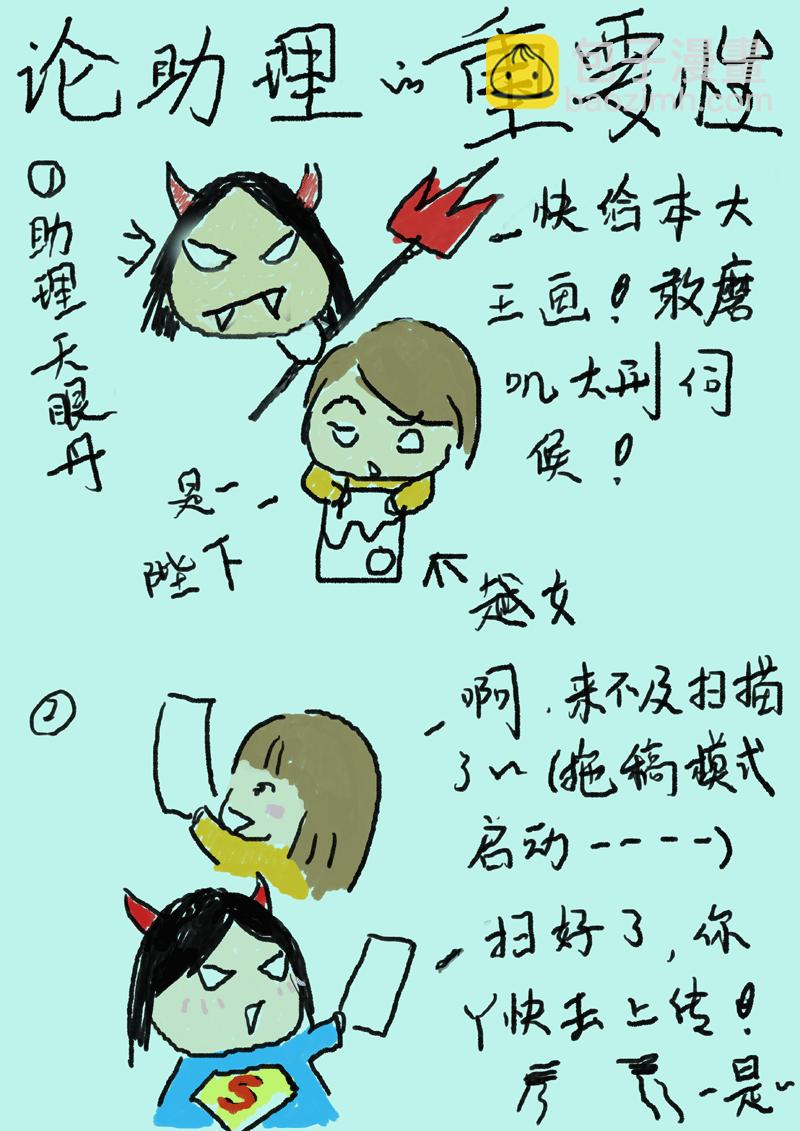 论助理的重要性
包子漫畫
baozimh.com
①
助理天眼丹
快给本大
王画！敢磨
叽大刑伺
候！
是一
陛下
越女
②
啊，来不及扫描
了~（拖稿模式
启动----）
扫好了，你
丫快去上传！
是~
S